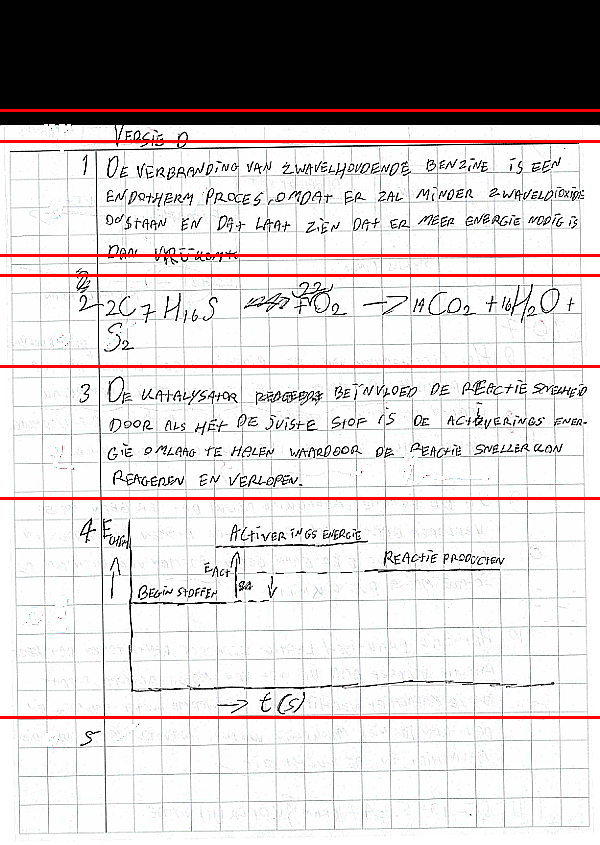 VERSIE D
1 DE VERBRANDING VAN ZWAVELHOUDENDE BENZINE IS EEN
ENDOTHERM PROCES, OMDAT ER ZAL MINDER ZWAVELDIOXIDE
ONSTAAN EN DAT LAAT ZIEN DAT ER MEER ENERGIE NODIG IS
DAN VRIJKOMT
2 2C7H16S 22 O2 → 14CO2 + 16H2O +
S2
3 DE KATALYSATOR BEÏNVLOED DE REACTIE SNELHEID
DOOR ALS HET DE JUISTE STOF IS DE ACTIVERINGS ENER-
GIE OMLAAG TE HALEN WAARDOOR DE REACTIE SNELLER KAN
REAGEREN EN VERLOPEN.
4 Echem
ACTIVERINGS ENERGIE
REACTIE PRODUCTEN
EACT
BEGIN STOFFEN
→ t(s)
5